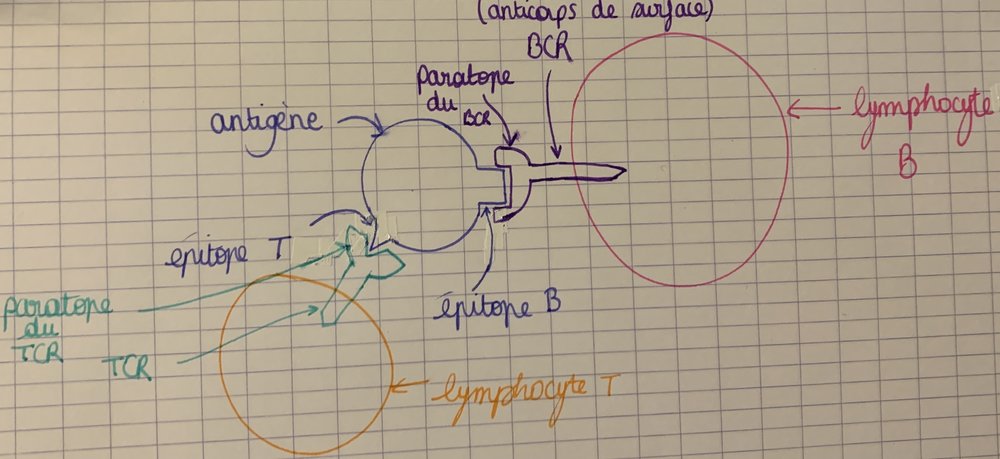 (anticorps de surface)
BCR
paratope
du
BCR
antigène
lymphocyte
B
épitope T
épitope B
paratope
du
TCR
TCR
lymphocyte T